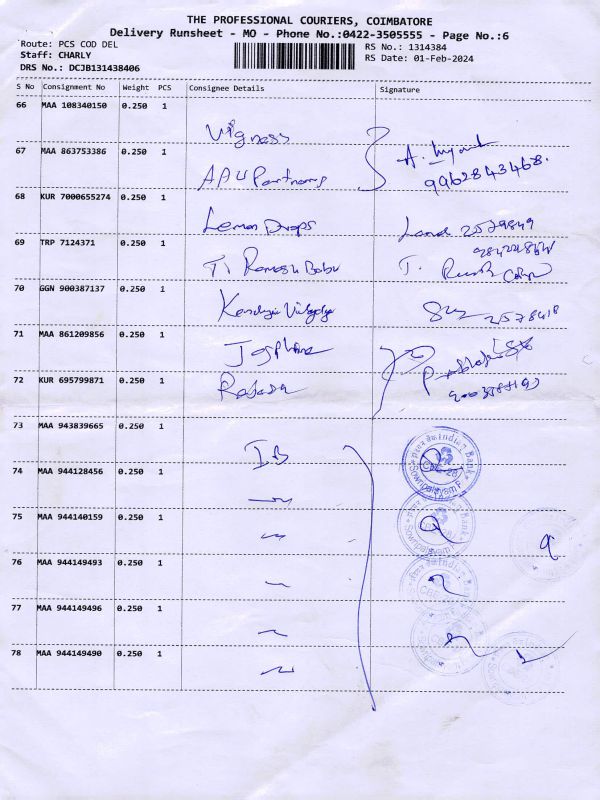 THE PROFESSIONAL COURIERS, COIMBATORE
Delivery Runsheet - MO - Phone No.:0422-3505555 - Page No.:6
Route: PCS COD DEL
RS No.: 1314384
Staff: CHARLY
RS Date: 01-Feb-2024
DRS No.: DCJB131438406
S No Consignment No Weight PCS Consignee Details Signature
66 MAA 108340150 0.250 1
Vigness
67 MAA 863753386 0.250 1
9962843468.
68 KUR 7000655274 0.250 1
Lemon Drops 2579849
69 TRP 7124371 0.250 1
T. Ramesh Babu T.
70 GGN 900387137 0.250 1
71 MAA 861209856 0.250 1
Josphine
72 KUR 695799871 0.250 1
73 MAA 943839665 0.250 1
IB
Indian Bank
74 MAA 944128456 0.250 1
75 MAA 944140159 0.250 1
76 MAA 944149493 0.250 1
77 MAA 944149496 0.250 1
78 MAA 944149490 0.250 1